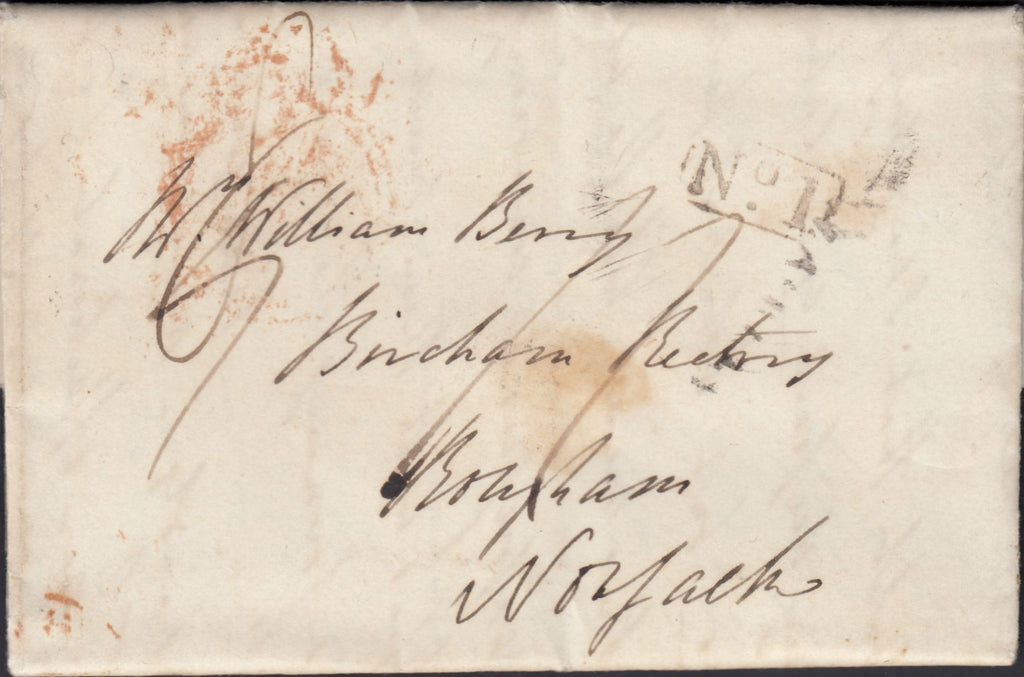 No. 1
Mr. William Berry
Bircham Rectory
Rougham
Norfolk